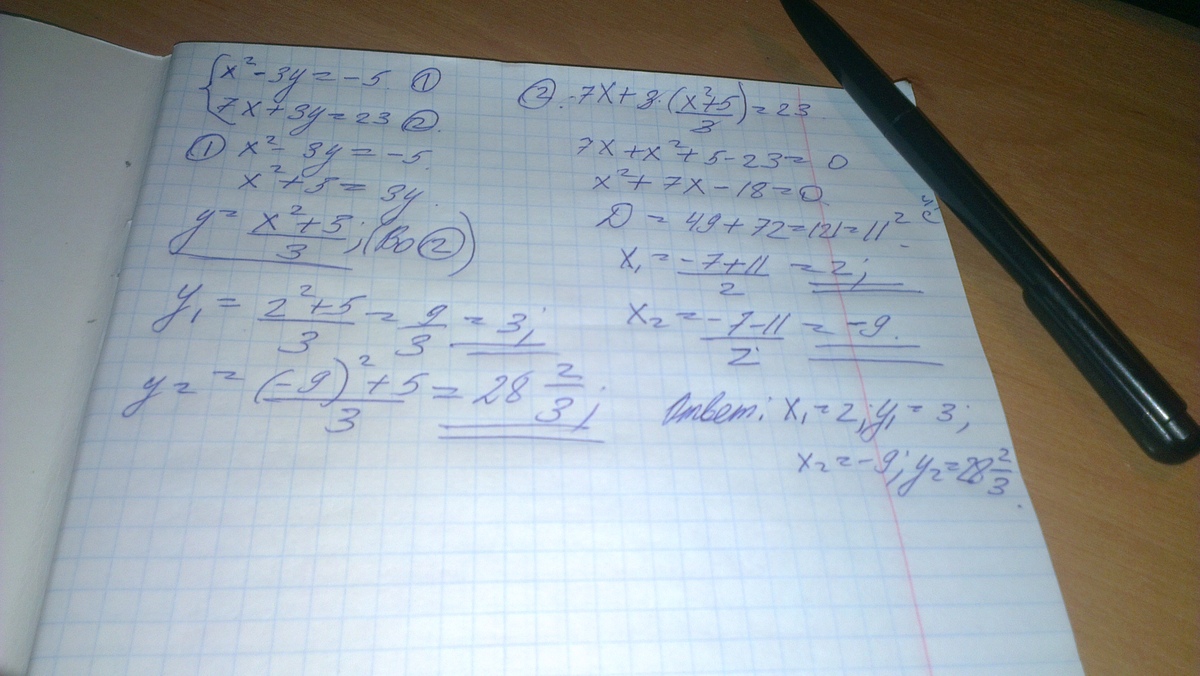 {x² - 3y = -5. ①
7x + 3y = 23 ②.
① x² - 3y = -5.
x² + 5 = 3y.
y = (x² + 5)/3; (Во ②)
y₁ = (2² + 5)/3 = 9/3 = 3;
y₂ = ((-9)² + 5)/3 = 28 2/3;
②. 7x + 3·((x² + 5)/3) = 23.
7x + x² + 5 - 23 = 0
x² + 7x - 18 = 0.
D = 49 + 72 = 121 = 11².
x₁ = (-7 + 11)/2 = 2;
x₂ = (-7 - 11)/2 = -9.
Ответ: x₁ = 2; y₁ = 3;
x₂ = -9; y₂ = 28 2/3.